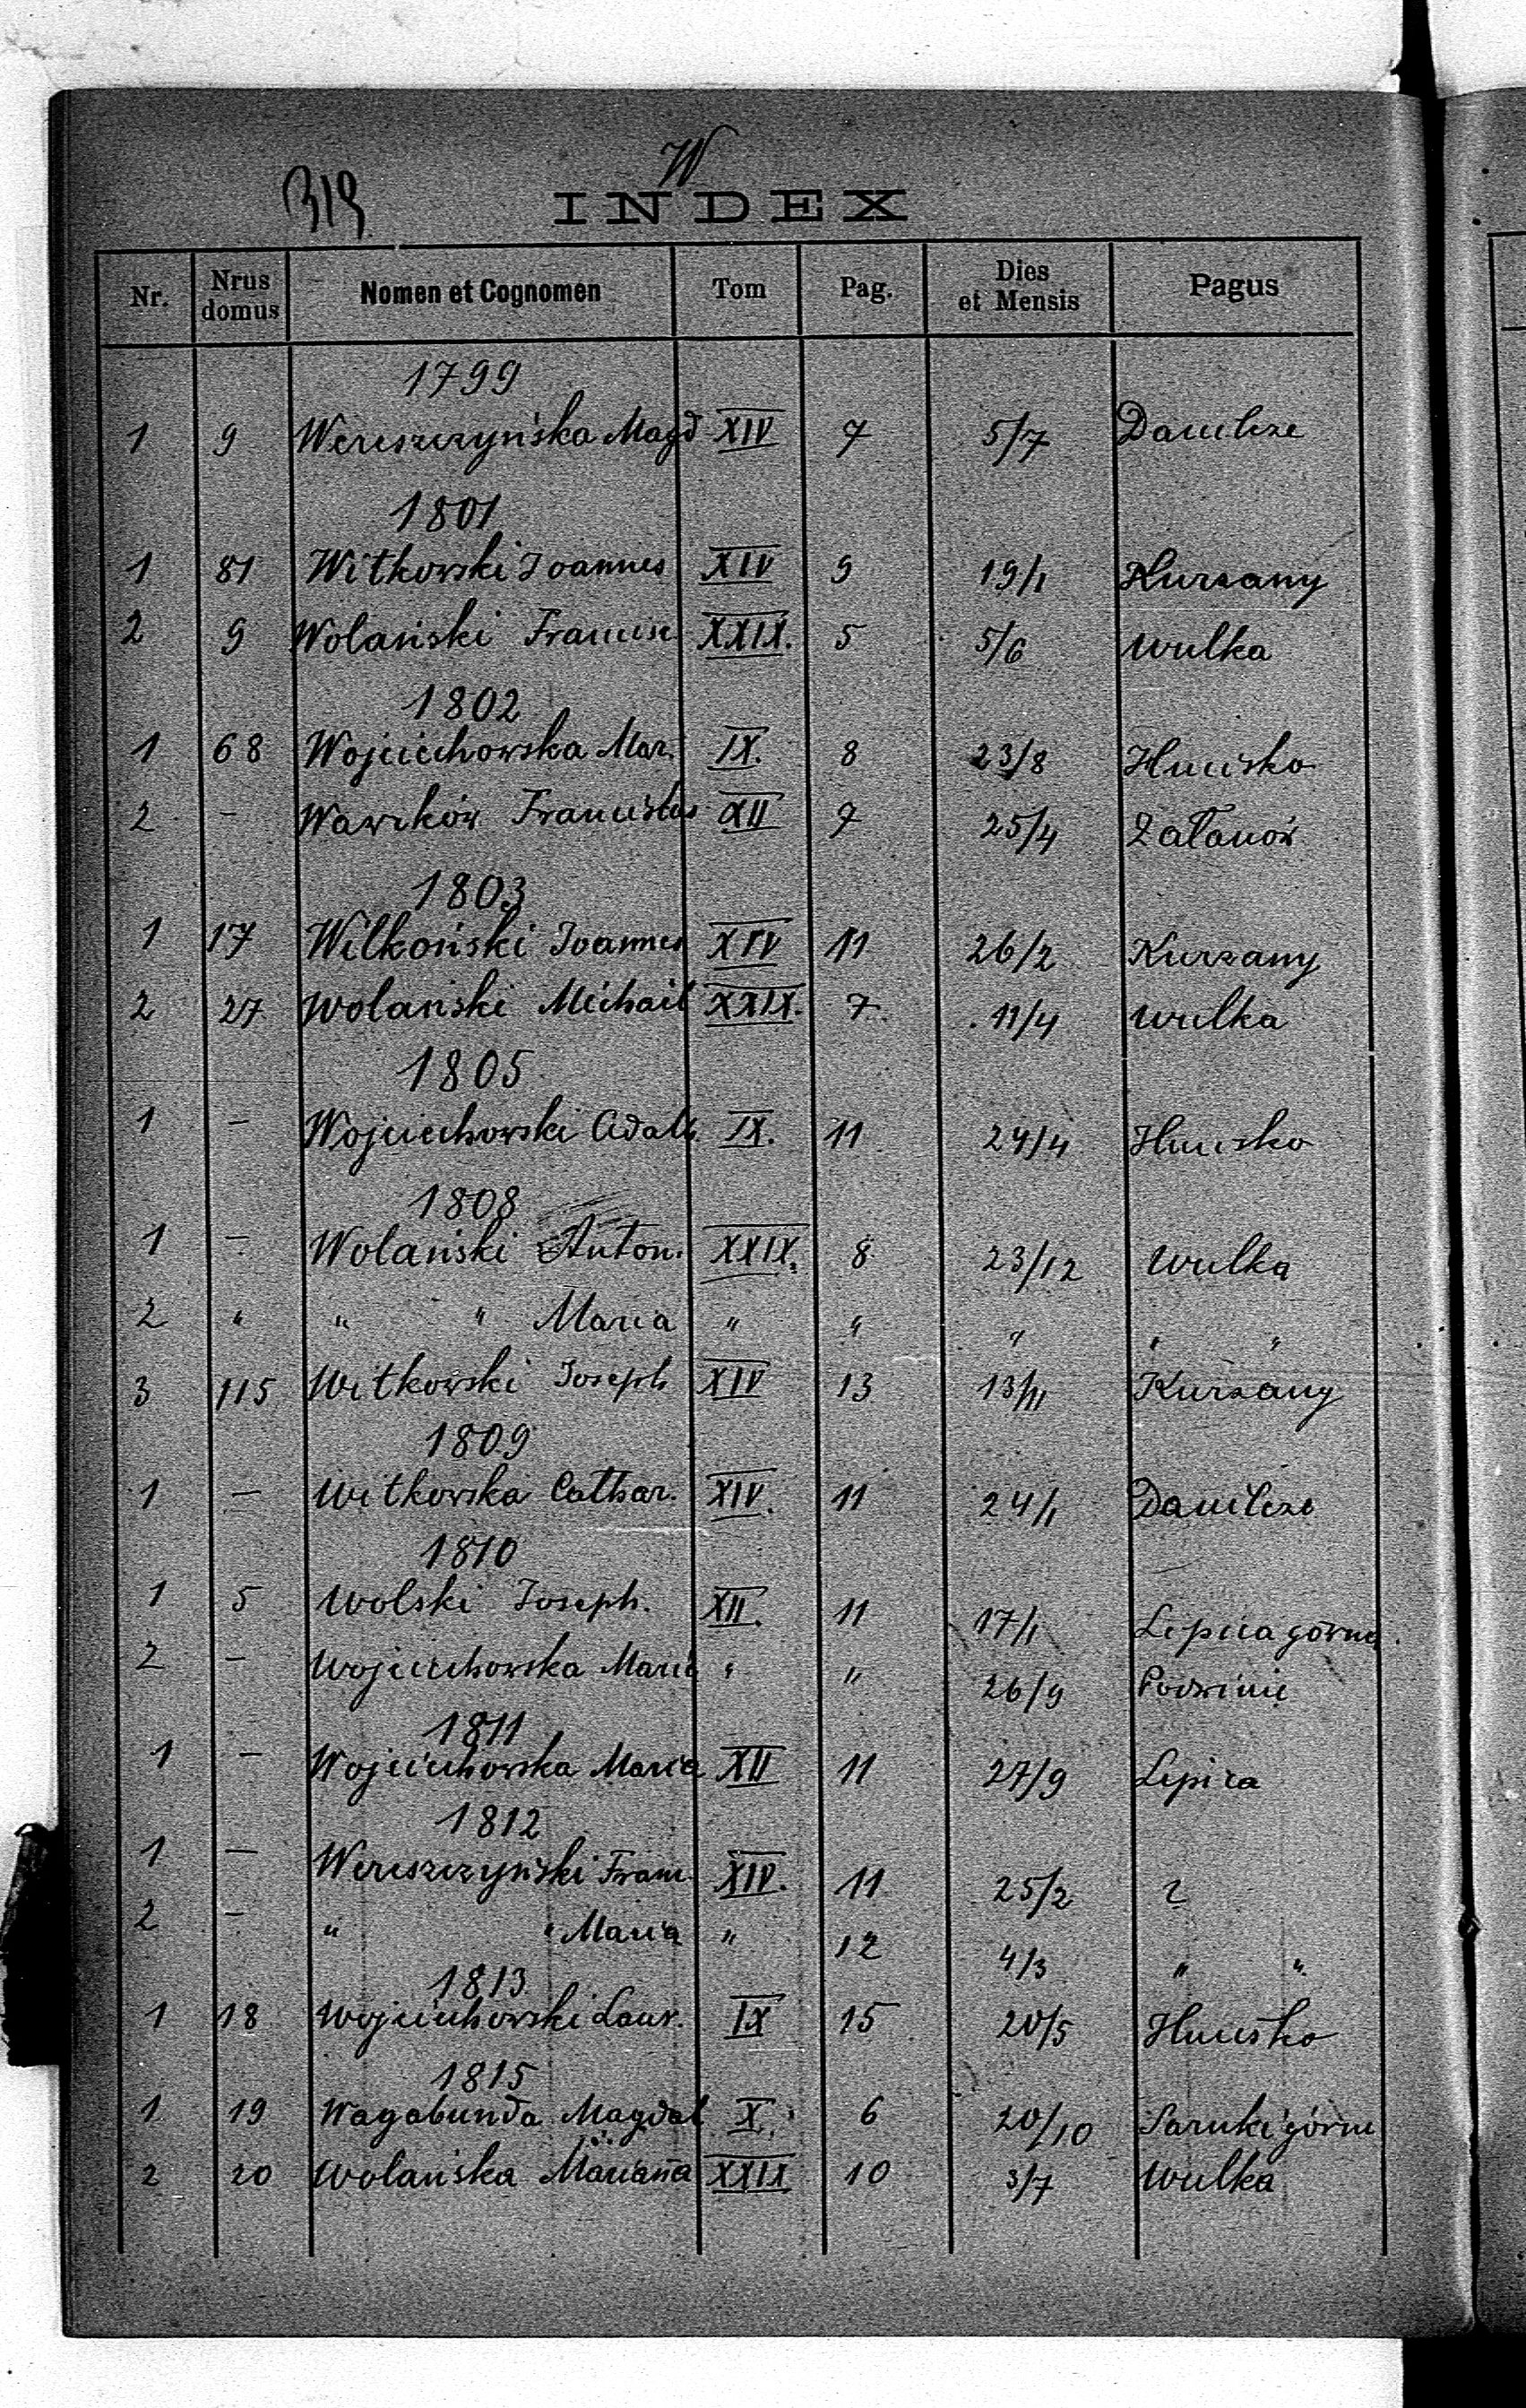 W
319
INDEX
Nr. Nrus domus Nomen et Cognomen Tom Pag. Dies et Mensis Pagus
1799
1 9 Wereszczyńska Magd XIV 7 5/7 Danilcze
1801
1 81 Witkowski Joannes XIV 9 19/1 Kurzany
2 9 Wolański Francisc XXIX. 5 5/6 Wulka
1802
1 68 Wojciechowska Mar. IX. 8 23/8 Hucisko
2 - Wawrków Franciscus XII 7 25/4 Załanów
1803
1 17 Wilkoński Joannes XIV 11 26/2 Kurzany
2 27 Wolański Michail XXIX. 7 11/4 Wulka
1805
1 - Wojciechowski Adalb. IX. 11 24/4 Hucisko
1808
1 - Wolański Anton. XXIX. 8 23/12 Wulka
2 " " " Maria " " " " "
3 115 Witkowski Joseph XIV 13 13/11 Kurzany
1809
1 - Witkowska Cathar. XIV. 11 24/1 Danilcze
1810
1 5 Wolski Joseph. XII. 11 17/1 Lipica górna.
2 - Wojciechowska Maria " " 26/9
1811
1 - Wojciechowska Maria XII 11 27/9 Lipica
1812
1 - Wereszczyński Franc. XIV. 11 25/2 ?
2 - " " Maria " 12 4/3 " "
1813
1 18 Wojciechowski Laur. IX 15 20/5 Hucisko
1815
1 19 Wagabunda Magdal X. 6 20/10 Sarnki górne
2 20 Wolańska Mariana XXIX 10 3/7 Wulka